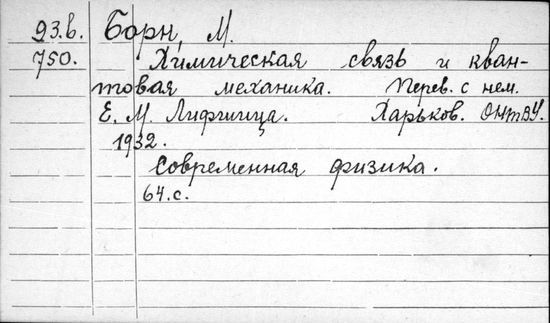 93.в. Борн, М.
750. Химическая связь и кван-
товая механика. Перев. с нем.
Е. М. Лифшица. Харьков. ОНТВУ.
1932.
Современная физика.
64.с.